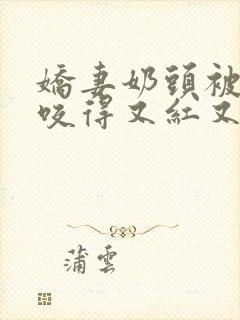 嬌妻奶頭被
咬得又紅又
蒲雲